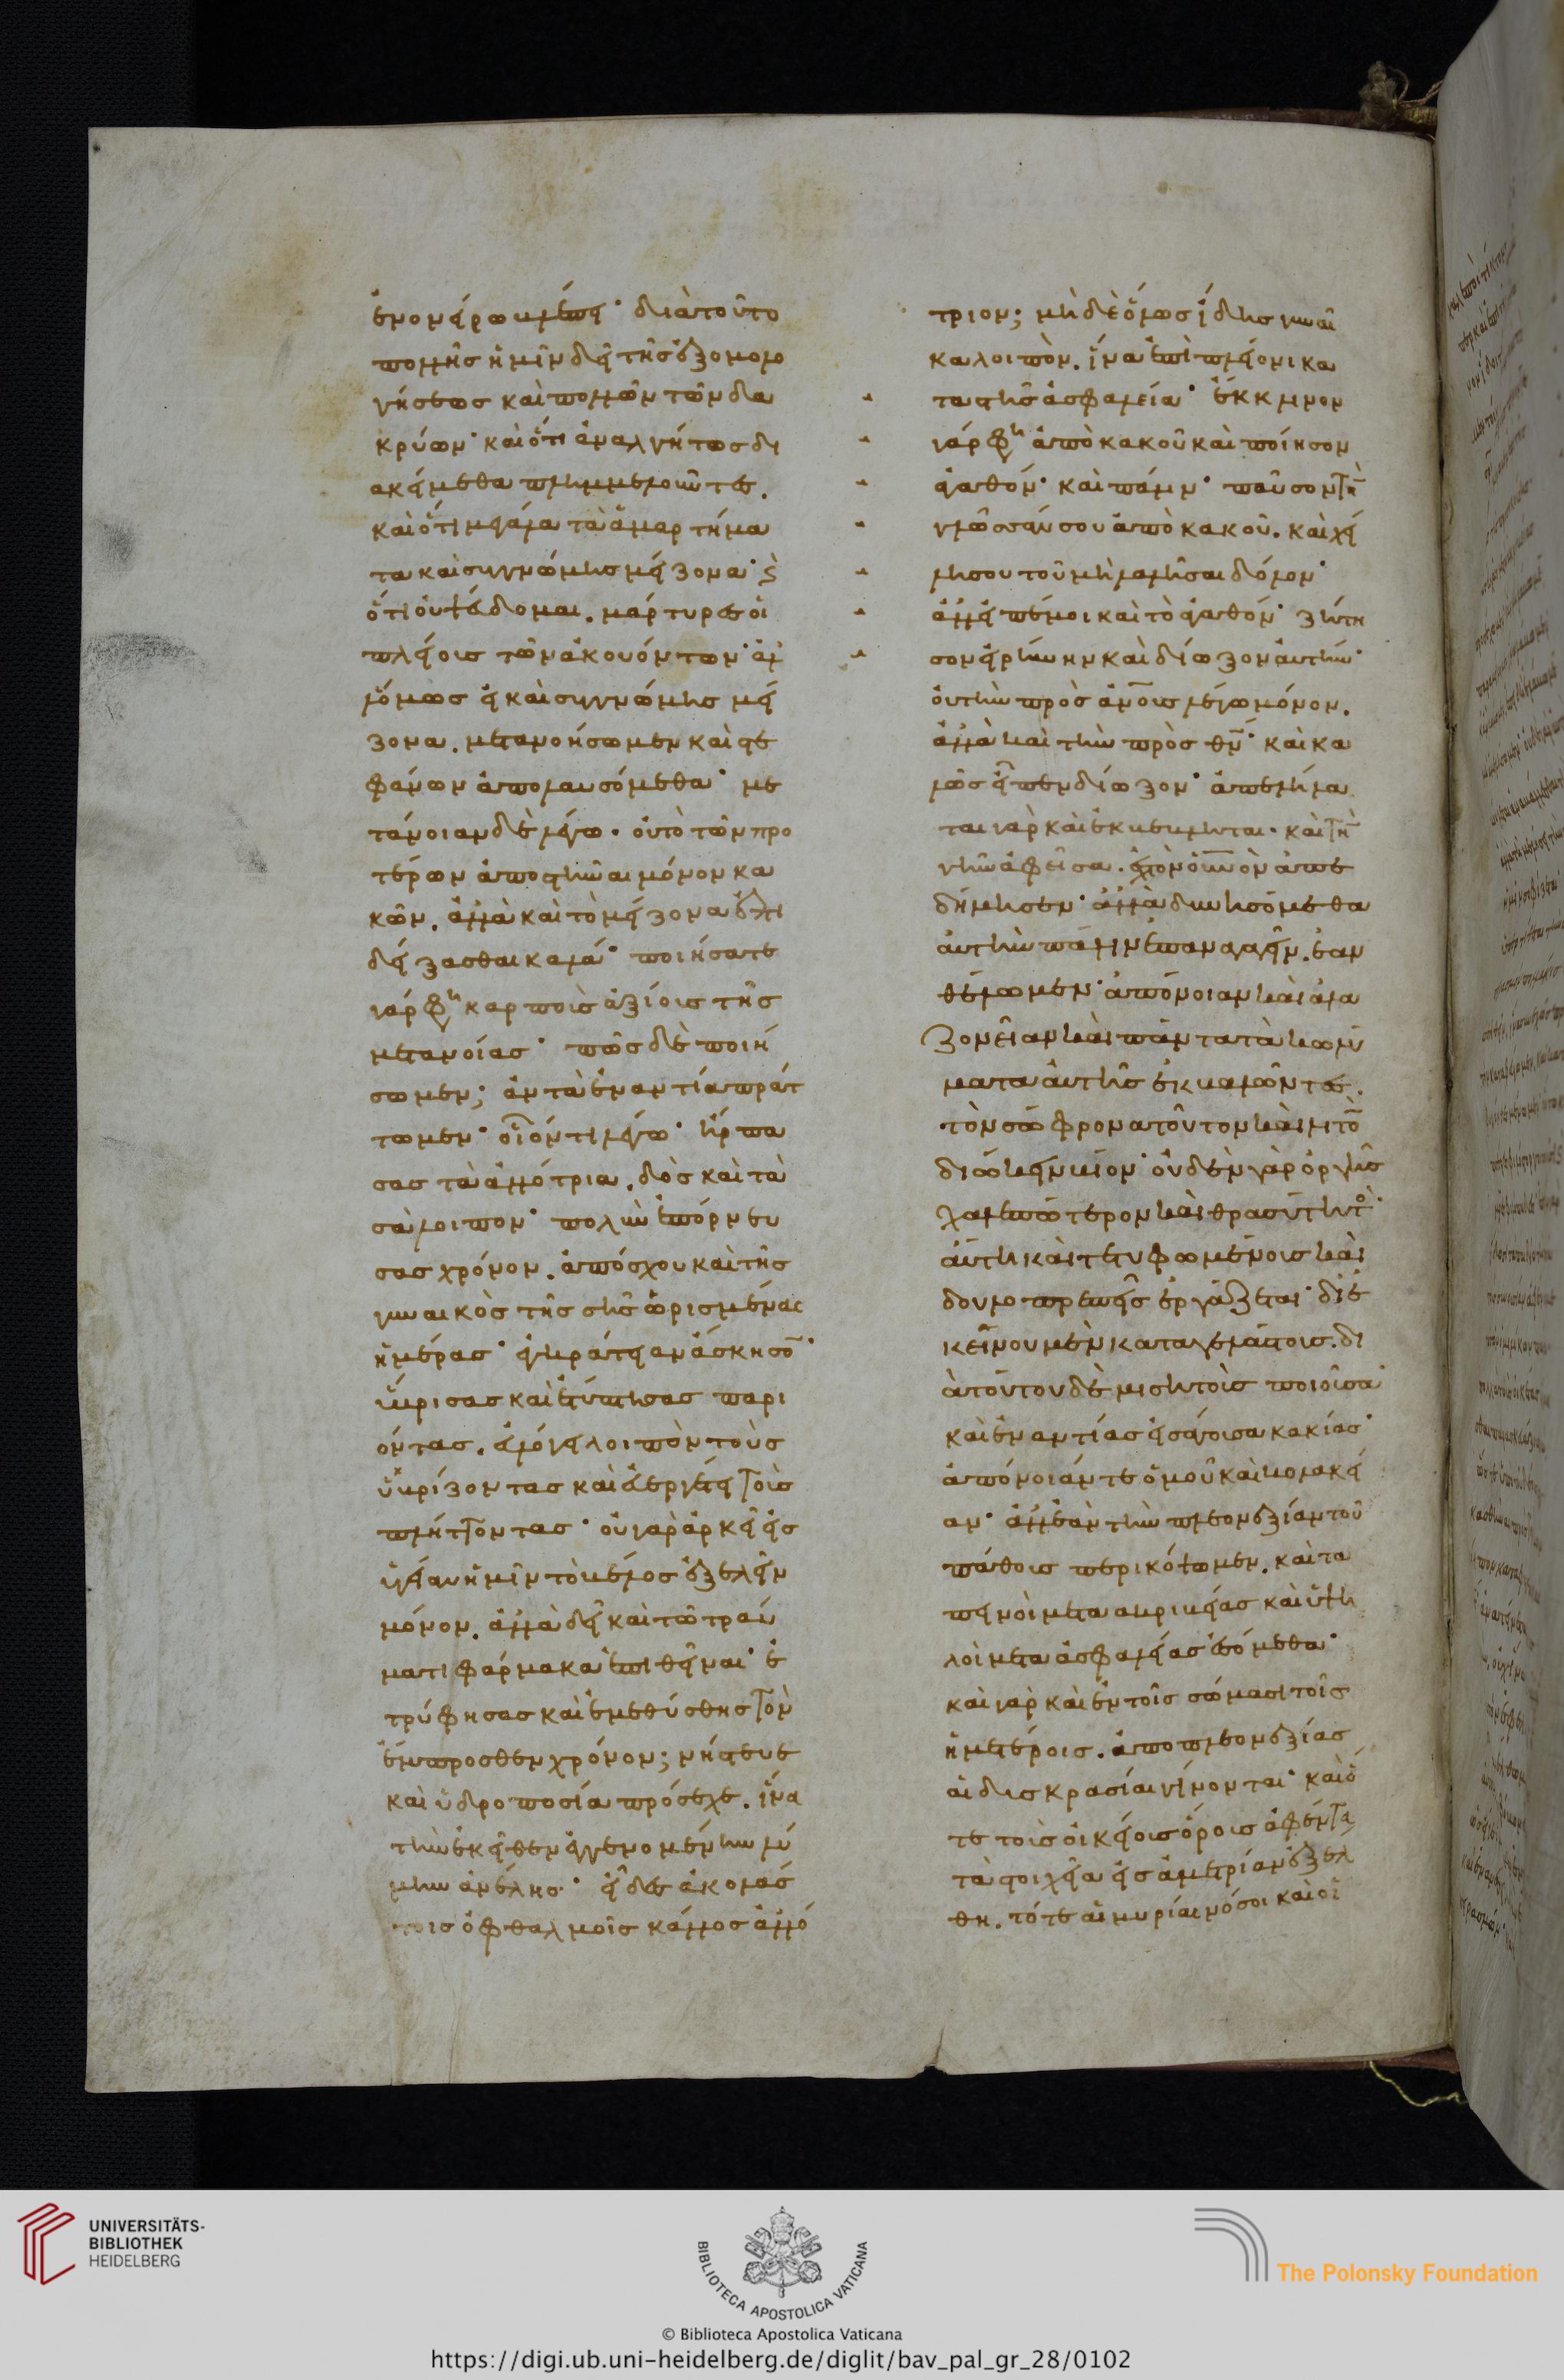 ἐν ὀνείρω βλέπει· διὰ τοῦτο
πολλῆς ἡμῖν δεῖ τῆς ἐξομολο
γήσεως καὶ πολλῶν τῶν δα
κρύων· καὶ ὅτι ἀναλγήτως δι
ακείμεθα πλημμελοῦντες.
καὶ ὅτι μεγάλα τὰ ἁμαρτήμα
τα καὶ συγγνώμης μείζονα· ϗ
ὅτι οὐ ψεύδομαι. μάρτυρες οἱ
πλείους τῶν ἀκουόντων· ἀλ
λόμως εἰ καὶ συγγνώμης μεί
ζονα. μετανοήσωμεν καὶ στε
φάνων ἀπολαυσόμεθα· με
τάνοιαν δὲ λέγω. οὐ τὸ τῶν προ
τέρων ἀποστῆναι μόνον κα
κῶν. ἀλλὰ καὶ τὸ μείζονα ἐπι
δείξασθαι καλά· ποιήσατε
γάρ φη καρποὺς ἀξίους τῆς
μετανοίας· πῶς δὲ ποιή
σωμεν; ἂν τὰ ἐναντία πράτ
τωμεν· οἷόν τι λέγω· ἥρπα
σας τὰ ἀλλότρια. δὸς καὶ τὰ
σὰ λοιπον· πολὺν ἐπόρνευ
σας χρόνον. ἀπόσχου καὶ τῆς
γυναικὸς τῆς σῆς ὡρισμένας
ἡμέρας· ἐγκράτειαν ἄσκησο̄·
ὕβρισας καὶ ἐτύπτησας παρι
όντας. εὐλόγει λοιπὸν τοὺς
ὑβρίζοντας καὶ εὐεργέτει τοὺς
πλήττοντας· οὐ γὰρ ἀρκεῖ εἰς
ὑγείαν ἡμῖν τὸ βέλος ἐξελεῖν
μόνον. ἀλλὰ δεῖ καὶ τῶ τραύ
ματι φάρμακα ἐπιθεῖναι· ἐ
τρύφησας καὶ ἐμεθύσθης τὸν
ἔμπροσθεν χρόνον; νήστευε
καὶ ὑδροποσία πρόσεχε. ἵνα
τὴν ἐκεῖθεν ἐγγενομένην λύ
μην ἀνέλης· εἶδες ἀκολάσ
τοις ὀφθαλμοῖς κάλλος ἀλλό
τριον; μὴ δὲ ὅλως ἴδης γυναῖ
κα λοιπὸν. ἵνα ἐπὶ πλείονι κα
ταστῆς ἀσφαλεία· ἔκκλινον
γάρ φη ἀπὸ κακοῦ καὶ ποίησον
ἀγαθόν· καὶ πάλιν· παῦσον τὴ̄
γλῶσσάν σου ἀπὸ κακοῦ. καὶ χεί
λη σου τοῦ μὴ λαλῆσαι δόλον·
ἀλλ εἰπέ μοι καὶ τὸ ἀγαθόν· ζήτη
σον εἰρήνην καὶ δίωξον αὐτήν·
οὐ τὴν πρὸς ἀν̄ους λέγω μόνον.
ἀλλὰ καὶ τὴν πρὸς θν̄· καὶ κα
λῶς εἶπεν δίωξον· ἀπελήλα
ται γὰρ καὶ ἐκβέβληται. καὶ τὴ̄
γῆν ἀφεῖσα. εἰς τὸν οὐν̄ον ἀπε
δήμησεν· ἀλλὰ δυνησόμεθα
αὐτὴν πάλιν ἐπαναγαγεῖν. ἐαν
θέλωμεν· ἀπόνοιαν καὶ ἀλα
ζονείαν καὶ πάντα τὰ κωλύ
ματα αὐτῆς ἐκβαλῶντες.
τὸν σώφρονα τοῦτον καὶ λιτὸ̄
διώκειν βίον· οὐδὲν γὰρ ὀργῆς
χαλεπώτερον καὶ θρασύτητο·
αὕτη καὶ τετυφωμένους καὶ
δουλοπρεπεῖς ἐργάζεται· δι ἐ
κείνου μὲν καταγελάστους. δι
ὰ τούτου δὲ μισητοὺς ποιοῦσα·
καὶ ἐναντίας εἰσάγουσα κακίας·
ἀπόνοιάν τε ὁμοῦ καὶ κολακεί
αν· ἀλλ ἐὰν τὴν πλεονεξίαν τοῦ
πάθους περικόψωμεν. καὶ τα
πεινοὶ μετα ακριβείας καὶ ὑψη
λοὶ μετα ἀσφαλείας ἐσόμεθα·
καὶ γὰρ καὶ ἐν τοῖς σώμασι τοῖς
ἡμετέροις. ἀπο πλεονεξίας
αἱ δυσκρασίαι γίνονται· καὶ ὅ
τε τοὺς οἰκείους ὅρους ἀφέντα
τὰ στοιχεῖα εἰς ἀμετρίαν ἐξέλ
θη. τότε αἱ μυρίαι νόσοι καὶ οἱ
UNIVERSITÄTS-
BIBLIOTHEK
HEIDELBERG
BIBLIOTECA APOSTOLICA VATICANA
The Polonsky Foundation
© Biblioteca Apostolica Vaticana
https://digi.ub.uni-heidelberg.de/diglit/bav_pal_gr_28/0102